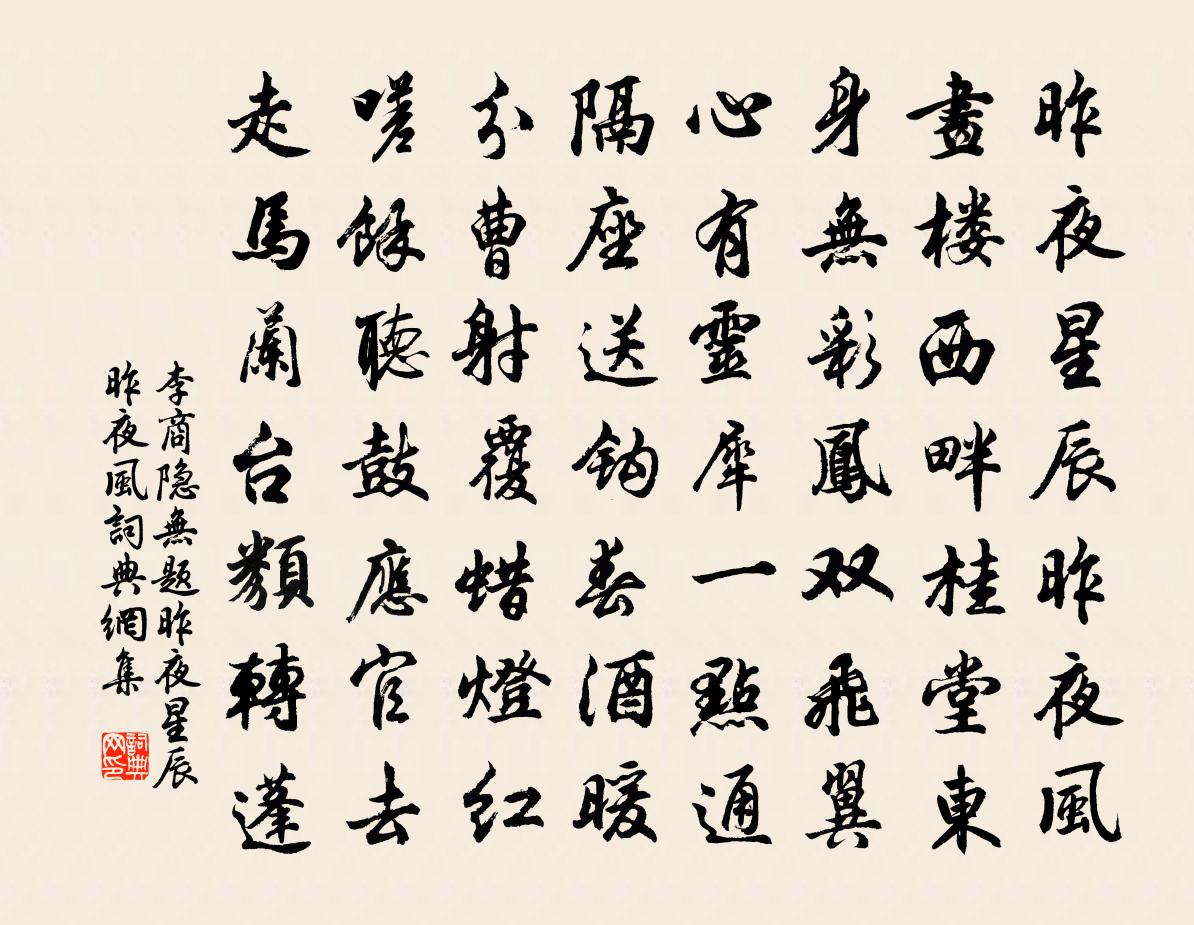 昨夜星辰昨夜風
畫楼西畔桂堂東
身無彩鳳双飛翼
心有靈犀一點通
隔座送鈎春酒暖
分曹射覆蜡燈红
嗟餘聽鼓應官去
走馬蘭台類轉蓬
李商隐無題昨夜星辰
昨夜風詞典網集
詞典
网印